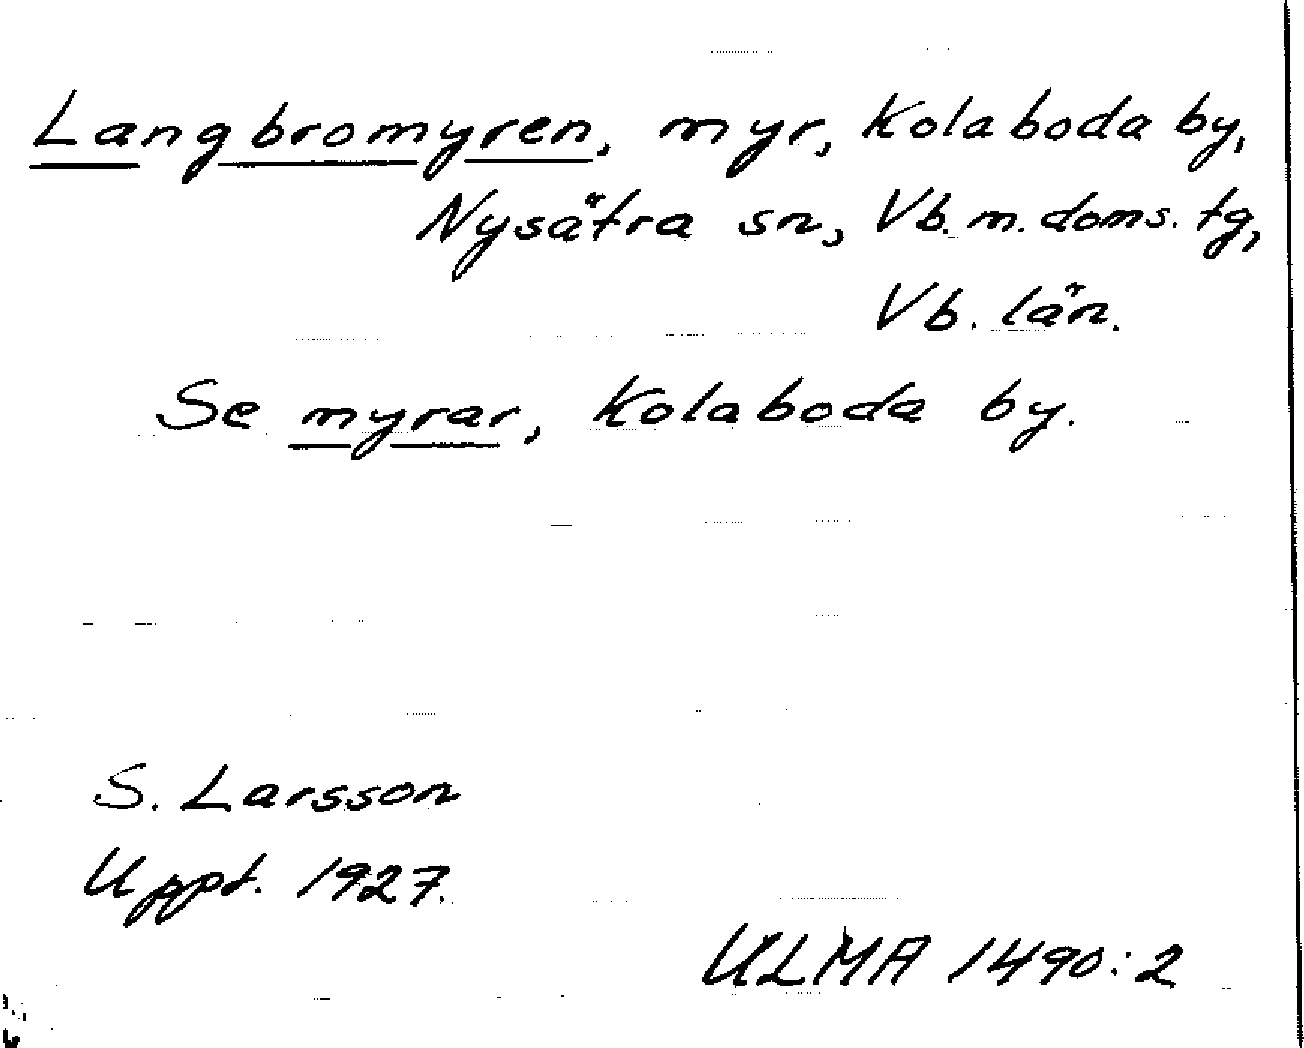 Langbromyren, myr, Kolaboda by,
Nysätra sn, Vb. m. doms. tg,
Vb. län.
Se myrar, Kolaboda by.
S. Larsson
Uppt. 1927.
ULMA 1490:2